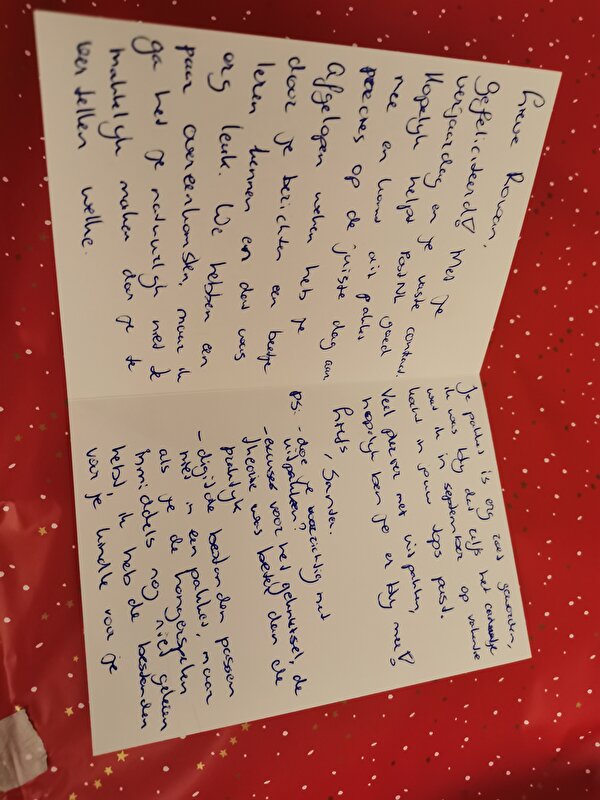 Lieve Rowan,
Gefeliciteerd! Met je
verjaardag en je vaste contract.
Hopelijk helpt PostNL goed
mee en komt dit pakket
precies op de juiste dag aan
Afgelopen weken heb ik je
door je berichten een beetje
leren kennen en dat was
erg leuk. We hebben een
paar overeenkomsten, maar ik
ga het je natuurlijk niet te
makkelijk maken door je te
vertellen welke.
Je pakket is erg roze geworden,
ik was blij dat zelfs het
wat ik in september op vakantie
kocht in jouw tips past.
Veel plezier met uitpakken,
hopelijk ben je er blij mee!
Liefs, Sandra.
PS: - doe je voorzichtig met
uitpakken?
- excuses voor het geknutsel, de
theorie was beter dan de
praktijk
- digitale bestanden passen
niet in een pakket, maar
als je de hongerspelen
inmiddels nog niet gelezen
hebt, ik heb de bestanden
voor je kindle voor je